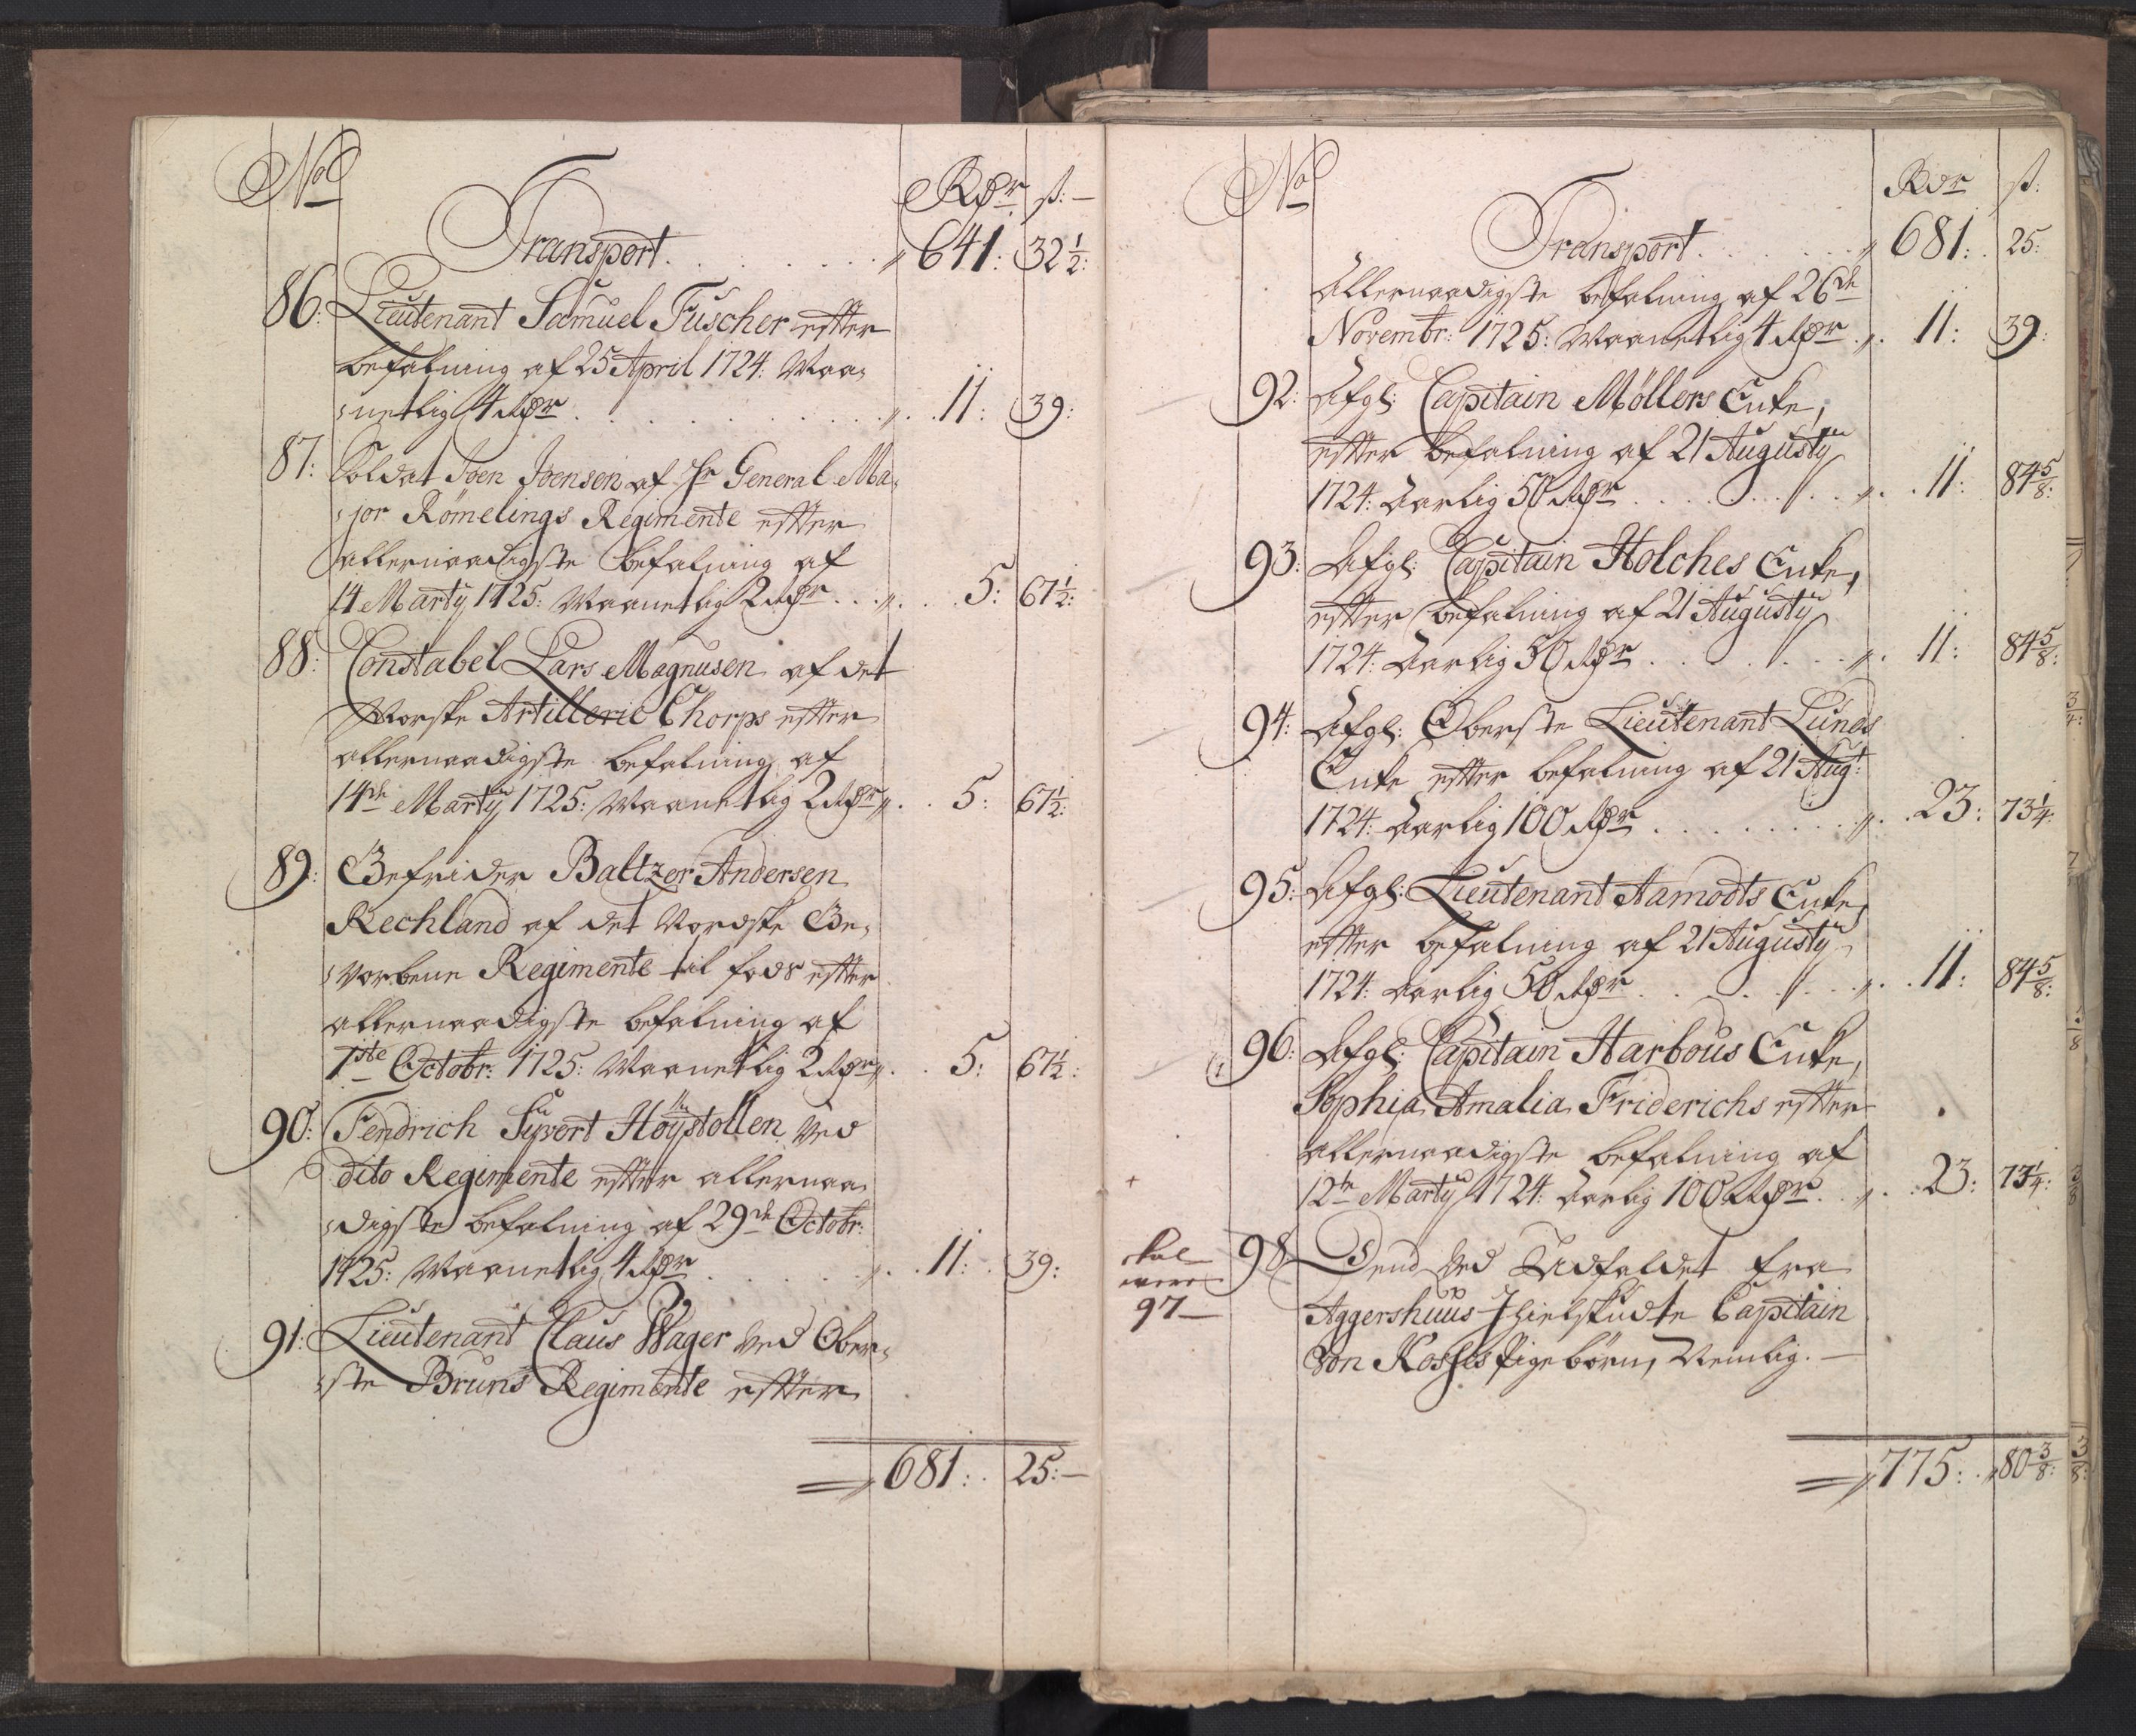 No Rdr ß:
Transport. 641: 32 1/2:
86: Lieutenant Samuel Fuscher efter
befalning af 25 April 1724: Maa-
netlig 4 Rdr 11: 39:
87: Soldat Sven Svensen af Hr General Ma-
jor Römelings Regimente efter
allernaadigste befalning af
14 Marty 1725: Maanetlig 2 Rdr 5: 67 1/2:
88: Constabel Lars Magnusen af det
Norske Artillerie Chorps efter
allernaadigste befalning af
14de Marty 1725: Maanetlig 2 Rdr 5: 67 1/2:
89: Gefrider Baltzer Andersen
Rechland af det Nordske Ge-
vorbene Regimente til fods efter
allernaadigste befalning af
1ste Octobr: 1725: Maanetlig 2 Rdr 5: 67 1/2:
90: Fendrich Syvert Höystollen ved
dito Regimente efter allernaa-
digste befalning af 29de Octobr:
1725: Maanetlig 4 Rdr 11: 39:
91: Lieutenant Claus Wager ved Ober-
ste Bruns Regimente efter
681: 25:
No Rdr ß:
Transport. 681: 25:
Allernaadigste befalning af 26de
Novembr: 1725: Maanetlig 4 Rdr 11: 39:
92: Afgl: Capitain Möllers Enke,
efter befalning af 21 Augusty
1724: Aarlig 50 Rdr 11: 84 5/8:
93: Afgl: Capitain Holches Enke,
efter befalning af 21 Augusty
1724: Aarlig 50 Rdr 11: 84 5/8:
94: Afgl: Oberste Lieutenant Lunds
Enke efter befalning af 21 Aug:
1724: Aarlig 100 Rdr 23: 73 1/4:
95: Afgl: Lieutenant Aamodts Enke,
efter befalning af 21 Augusty
1724: Aarlig 50 Rdr 11: 84 5/8:
96: Afgl: Capitain Harbous Enke,
Sophia Amalia Friderichs efter
allernaadigste befalning af
12te Marty 1724: Aarlig 100 Rdr 23: 73 1/4:
skal
være
97
98 Dend ved Udfaldet fra
Aggershuus Ihielskudte Capitain
Von Kosses Pigebörn, Nemlig.
775: 80 3/8: